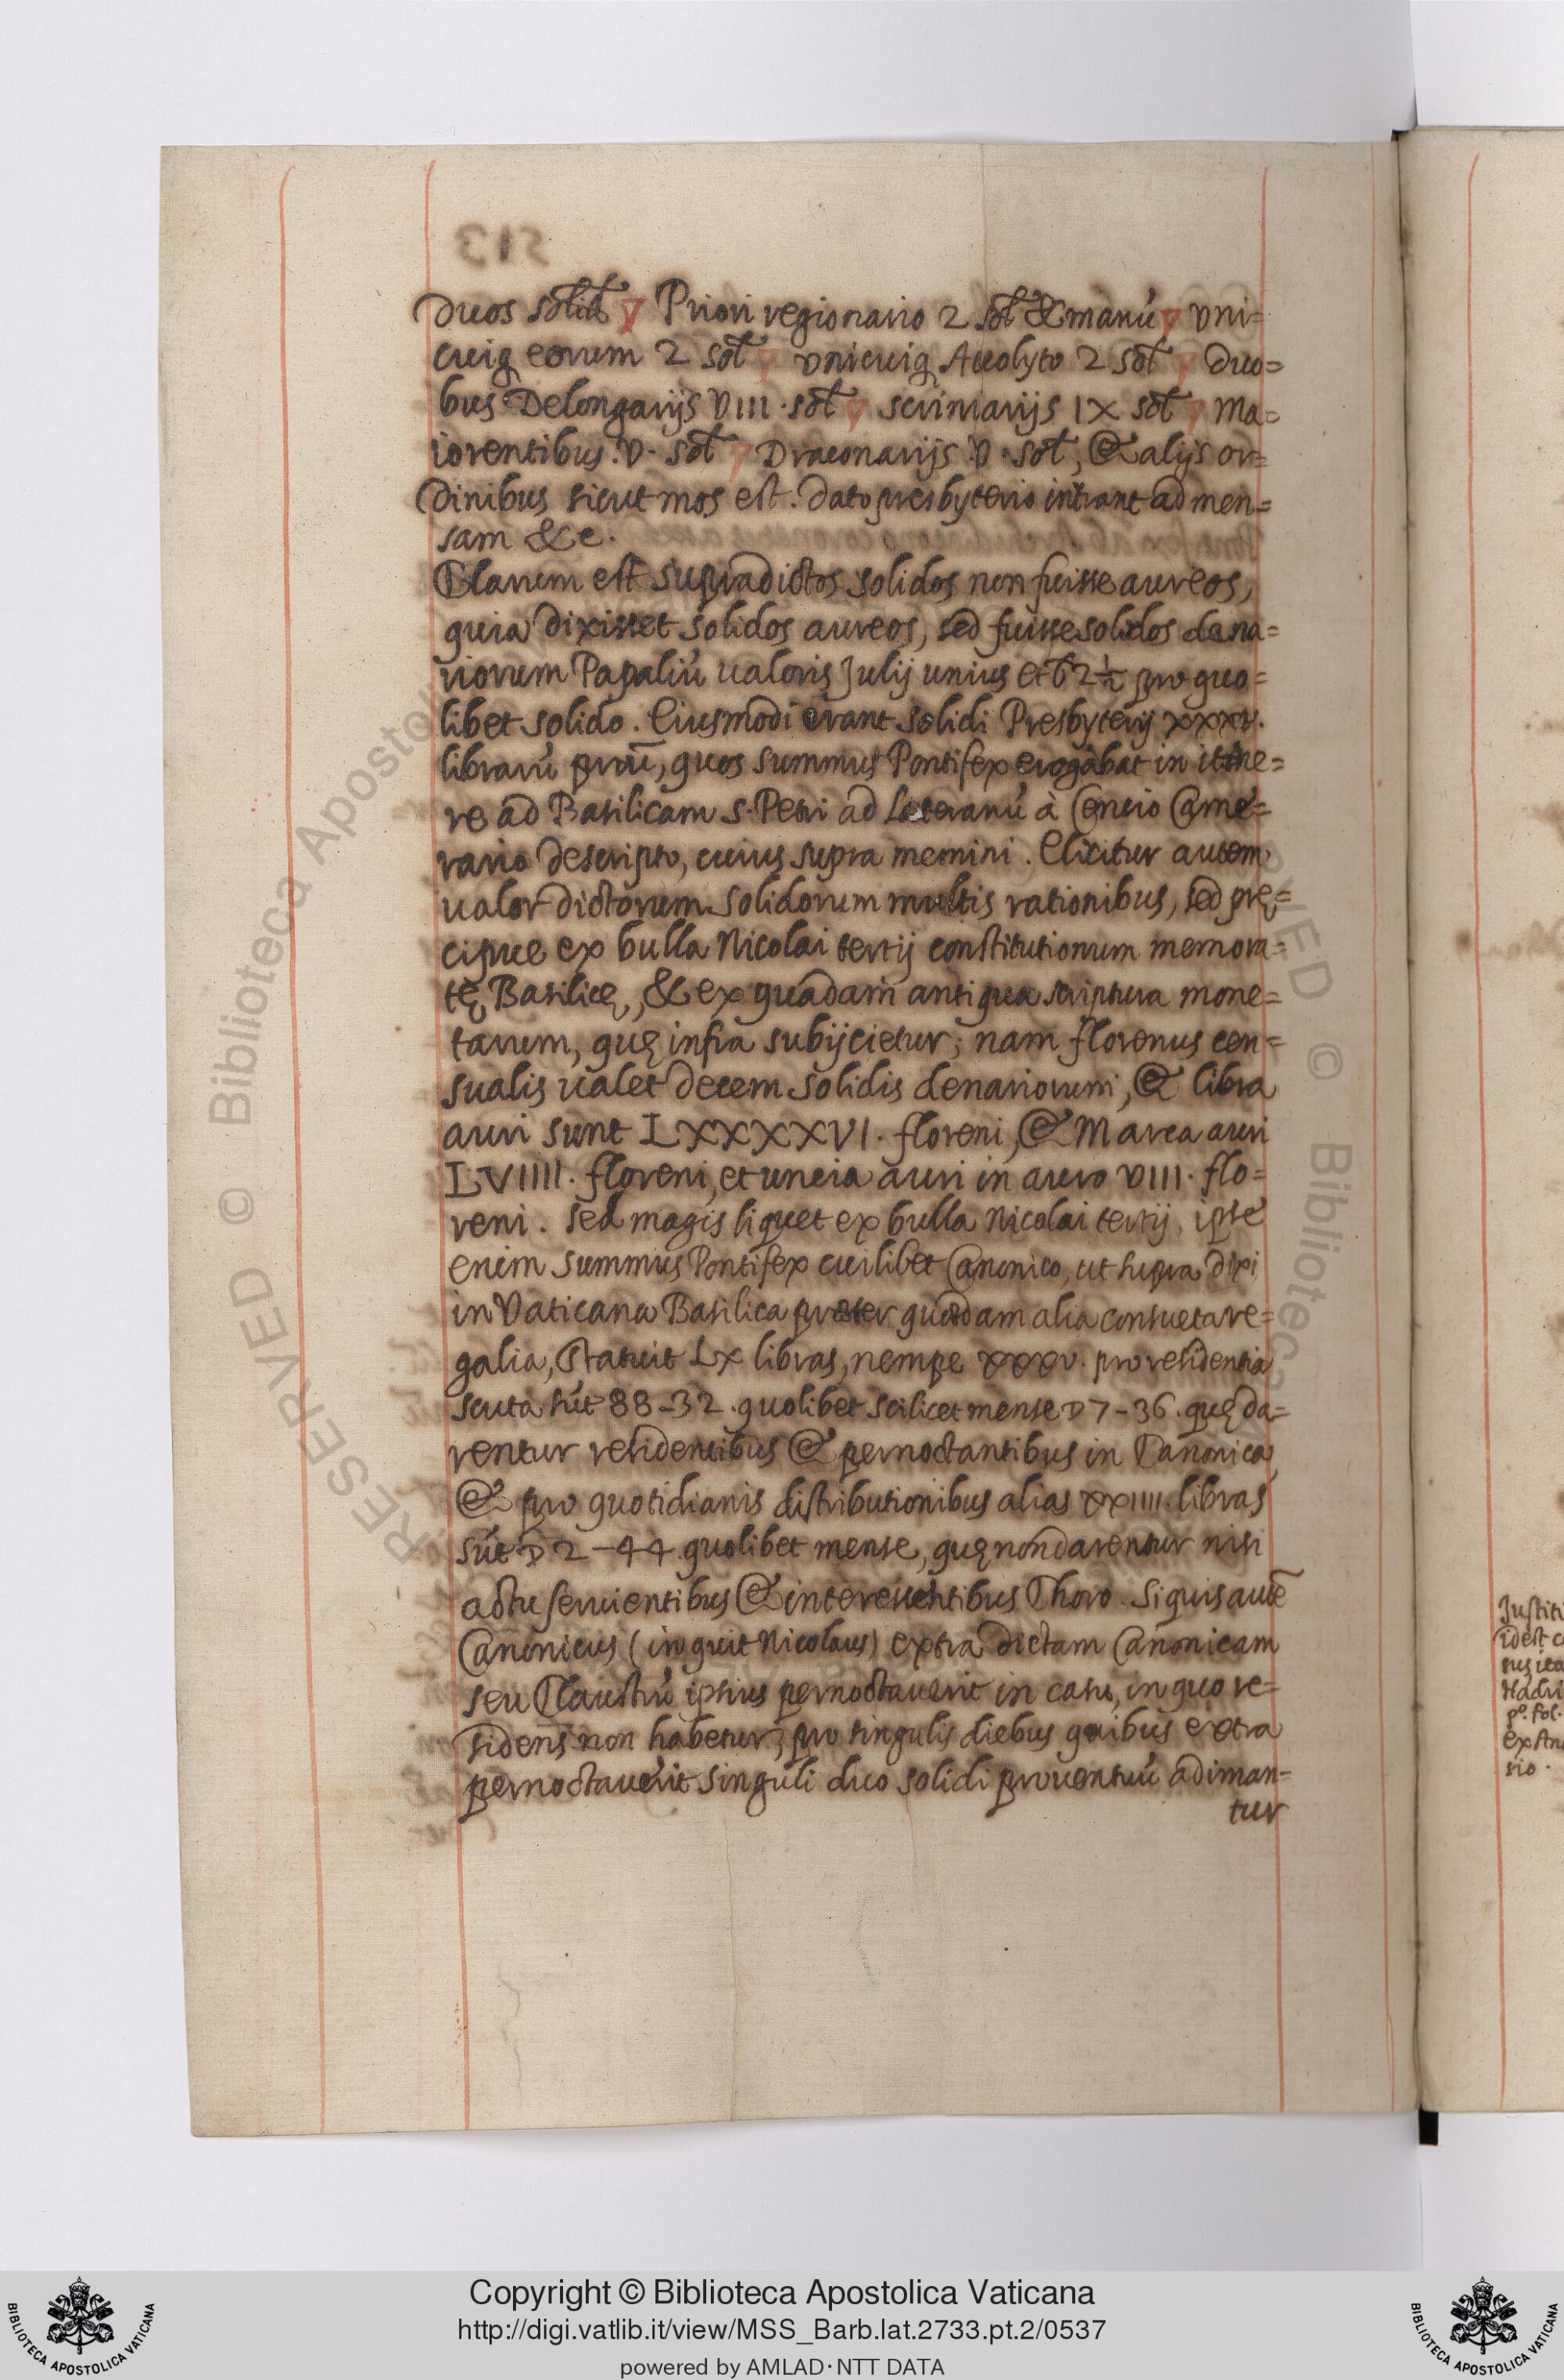 duos solid Priori regionario 2 sol & manū vni=
cuiq eorum 2 sol vnicuiq Accolyto 2 sol duo=
bus Delongarijs VIII. sol scriniarijs IX sol ma=
iorentibus V. sol Draconarijs V. sol, & alijs or=
dinibus sicut mos est. dato presbyterio intrant ad men=
sam &c.
Clarum est supradictos solidos non fuisse aureos,
quia dixisset solidos aureos, sed fuisse solidos dena=
riorum Papaliū ualoris Julij unius et 62 ½ pro quo=
libet solido. Eiusmodi erant solidi Presbyterij xxxv.
librarū prou, quos summus Pontifex erogabat in itine=
re ad Basilicam S. Petri ad Lateranū à Cencio Came=
rario descripto, cuius supra memini. Elicitur autem
ualor dictorum solidorum multis rationibus, sed prę=
cipue ex bulla Nicolai tertij constitutionum memora=
tę Basilicę, & ex quadam antiqua scriptura mone=
tarum, quę infra subijcietur; nam florenus cen=
sualis ualet decem solidis denariorum, & libra
auri sunt LXXXXVI. floreni, & Marca auri
LVIIII. floreni, et uncia auri in auro VIII. flo=
reni. Sed magis liquet ex bulla Nicolai tertij, ipse
enim summus Pontifex cuilibet Canonico, ut supra dixi
in Vaticana Basilica præter quædam alia consueta re=
galia, statuit Lx libras, nempe xxxv. pro residentia
scuta sūt 88-32. quolibet scilicet mense D 7-36. quę da=
rentur residentibus & pernoctantibus in Canonica
& pro quotidianis distributionibus alias xxiiii. libras
sūt D 2-44 quolibet mense, quę non darentur nisi
actu seruientibus & interessentibus Choro. Siquis autē
Canonicus (inquit Nicolaus) extra dictam Canonicam
seu Claustrū ipsius pernoctauerit in casu, in quo re=
sidens non habetur, pro singulis diebus quibus extra
pernoctauerit singuli duo solidi prouentuū adiman=
tur
513
Justiti
idest c
sus ita
Hadri
p.º fol.
ex An
sio.
Copyright © Biblioteca Apostolica Vaticana
http://digi.vatlib.it/view/MSS_Barb.lat.2733.pt.2/0537
powered by AMLAD·NTT DATA
BIBLIOTECA APOSTOLICA VATICANA
BIBLIOTECA APOSTOLICA VATICANA